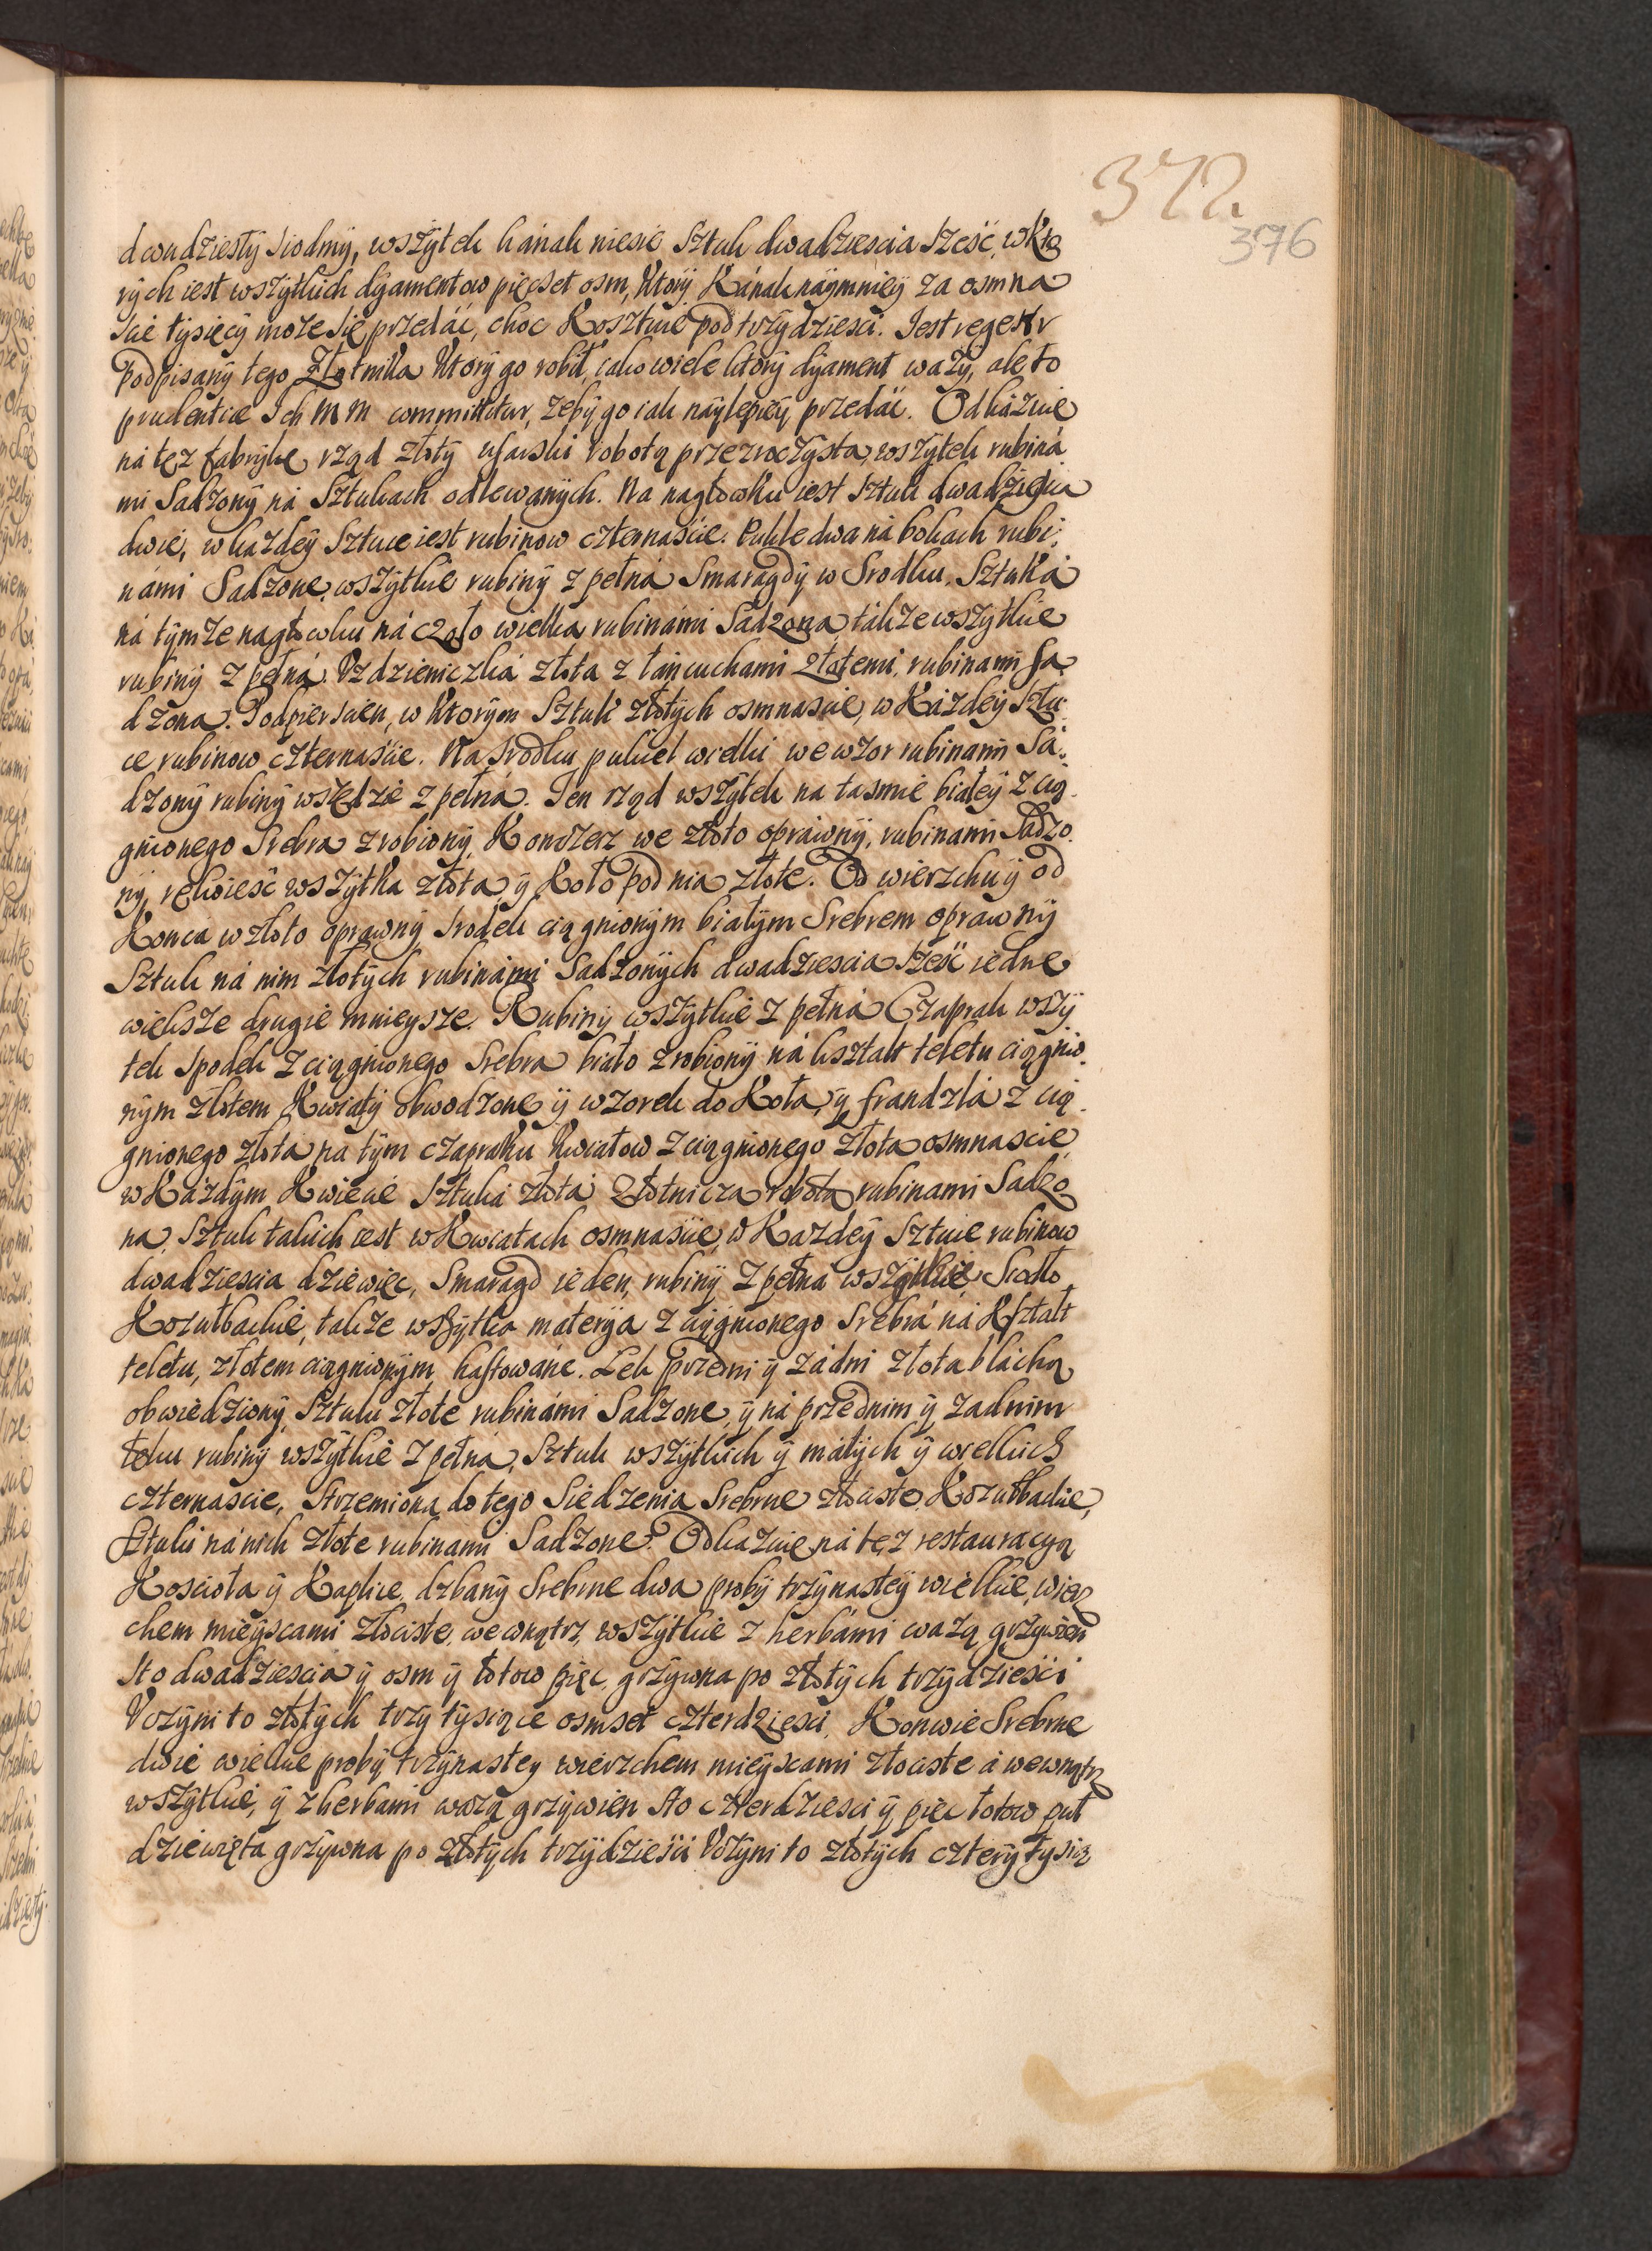 372
376
dwudziesty siodmy, wszytek kanak niesie Sztuk dwadziescia sześć, w Kto
rych iest wszytkich dyamentow pięcset osm, Ktory Kának náymniey za osmna
scie tysięcy może się przedáć, choc Kosztuie pod trzydziesci. Jest regestr
podpisany tego Złotnika Ktory go robił, iako wiele ktory dyament waży, ale to
prudentiæ Ich M M committitur, żeby go iak naylepiey przedáć. Odkázuie
ná tęż fabrykę rząd złoty usarski robotą przezroczysta, wszytek rubiná
mi Sadzony ná Sztukach odlewanych. Na nagłowku iest sztuk dwadziescia
dwie, w kazdey Sztuce iest rubinow czternaście. Pukle dwa ná bokach rubi:
námi Sadzone, wszytkie rubiny z pełná Smaragdy w Srodku, Sztuká
ná tymże nagłowku ná czoło wielka rubinámi Sádzona, tákze wszytkie
rubiny z pełná. Uzdzieniczká złota z łáncuchami złotemi, rubinami sa
dzona. Podpiersien, w Ktorym Sztuk złotych osmnascie, w Kázdey Sztu
ce rubinow czternaście. Na srodku pukiel wielki we wzor rubinami Sá:
dzony rubiny wszędzie z pełná. Ten rząd wszytek na tasmie białey z cią
gnionego Srebra zrobiony, Koncerz we złoto oprawny, rubinami Sadzo
ny, rękoieść wszytka złota, y Koło pod nia złote. Od wierzchu y od
Konca w złoto oprawny srodek ciągnionym białym Srebrem oprawny
Sztuk ná nim złotych rubinámi Sadzonych dwadziescia sześć iedne
większe drugie mnieysze. Rubiny wszytkie z pełná Czaprak wszy
tek spodek z ciągnionego Srebra biało zrobiony ná kształt teletu ciągnio
nym złotem Kwiaty obwodzone y wzorek do Koła, y frandzlá z cią
gnionego złota na tym czapraku Kwiatow z ciągnionego złota osmnascie,
w Káżdym Kwiecie Sztuká złotá Złotnicza robota rubinami Sadzo
na, Sztuk takich iest w Kwiatach osmnascie, w Kazdey Sztuce rubinow
dwadziescia dziewięc, Smaragd ieden, rubiny z pełna wszytkie, Siodło
Kozułbackie, także wszytka materya z ciągnionego Srebrá ná Kształt
teletu, złotem ciągnionym haftowáne. Łek przedni y zádni złota bláchą
obwiedziony, Sztuki złote rubinámi Sadzone, y ná przednim y zadnim
łęku rubiny wszytkie z pełná, Sztuk wszytkich y máłych y wielkich
czternascie, Strzemioná do tego Siedzenia Srebrne złociste Kozułbackie,
Sztuki ná nich złote rubinami Sadzone. Odkazuie ná tęż restauracyą
Koscioła y Kaplice, dzbany Srebrne dwa proby trzynastey wielkie, wierz
chem mieyscami złociste, wewnątrz, wszytkie z herbámi ważą grzywien
sto dwadziescia y osm y łotow pięc, grzywna po złotych trzydzieści
Uczyni to złotych trzy tysiące osmset czterdziesci, Konwie Srebrne
dwie wielkie proby trzynastey wierzchem mieyscami złociste á wewnątrz
wszytkie, y z herbami ważą grzywien sto czterdziesci y pięc łotow puł
dziewięta grzywna po złotych trzydzieści Uczyni to złotych cztery tysią